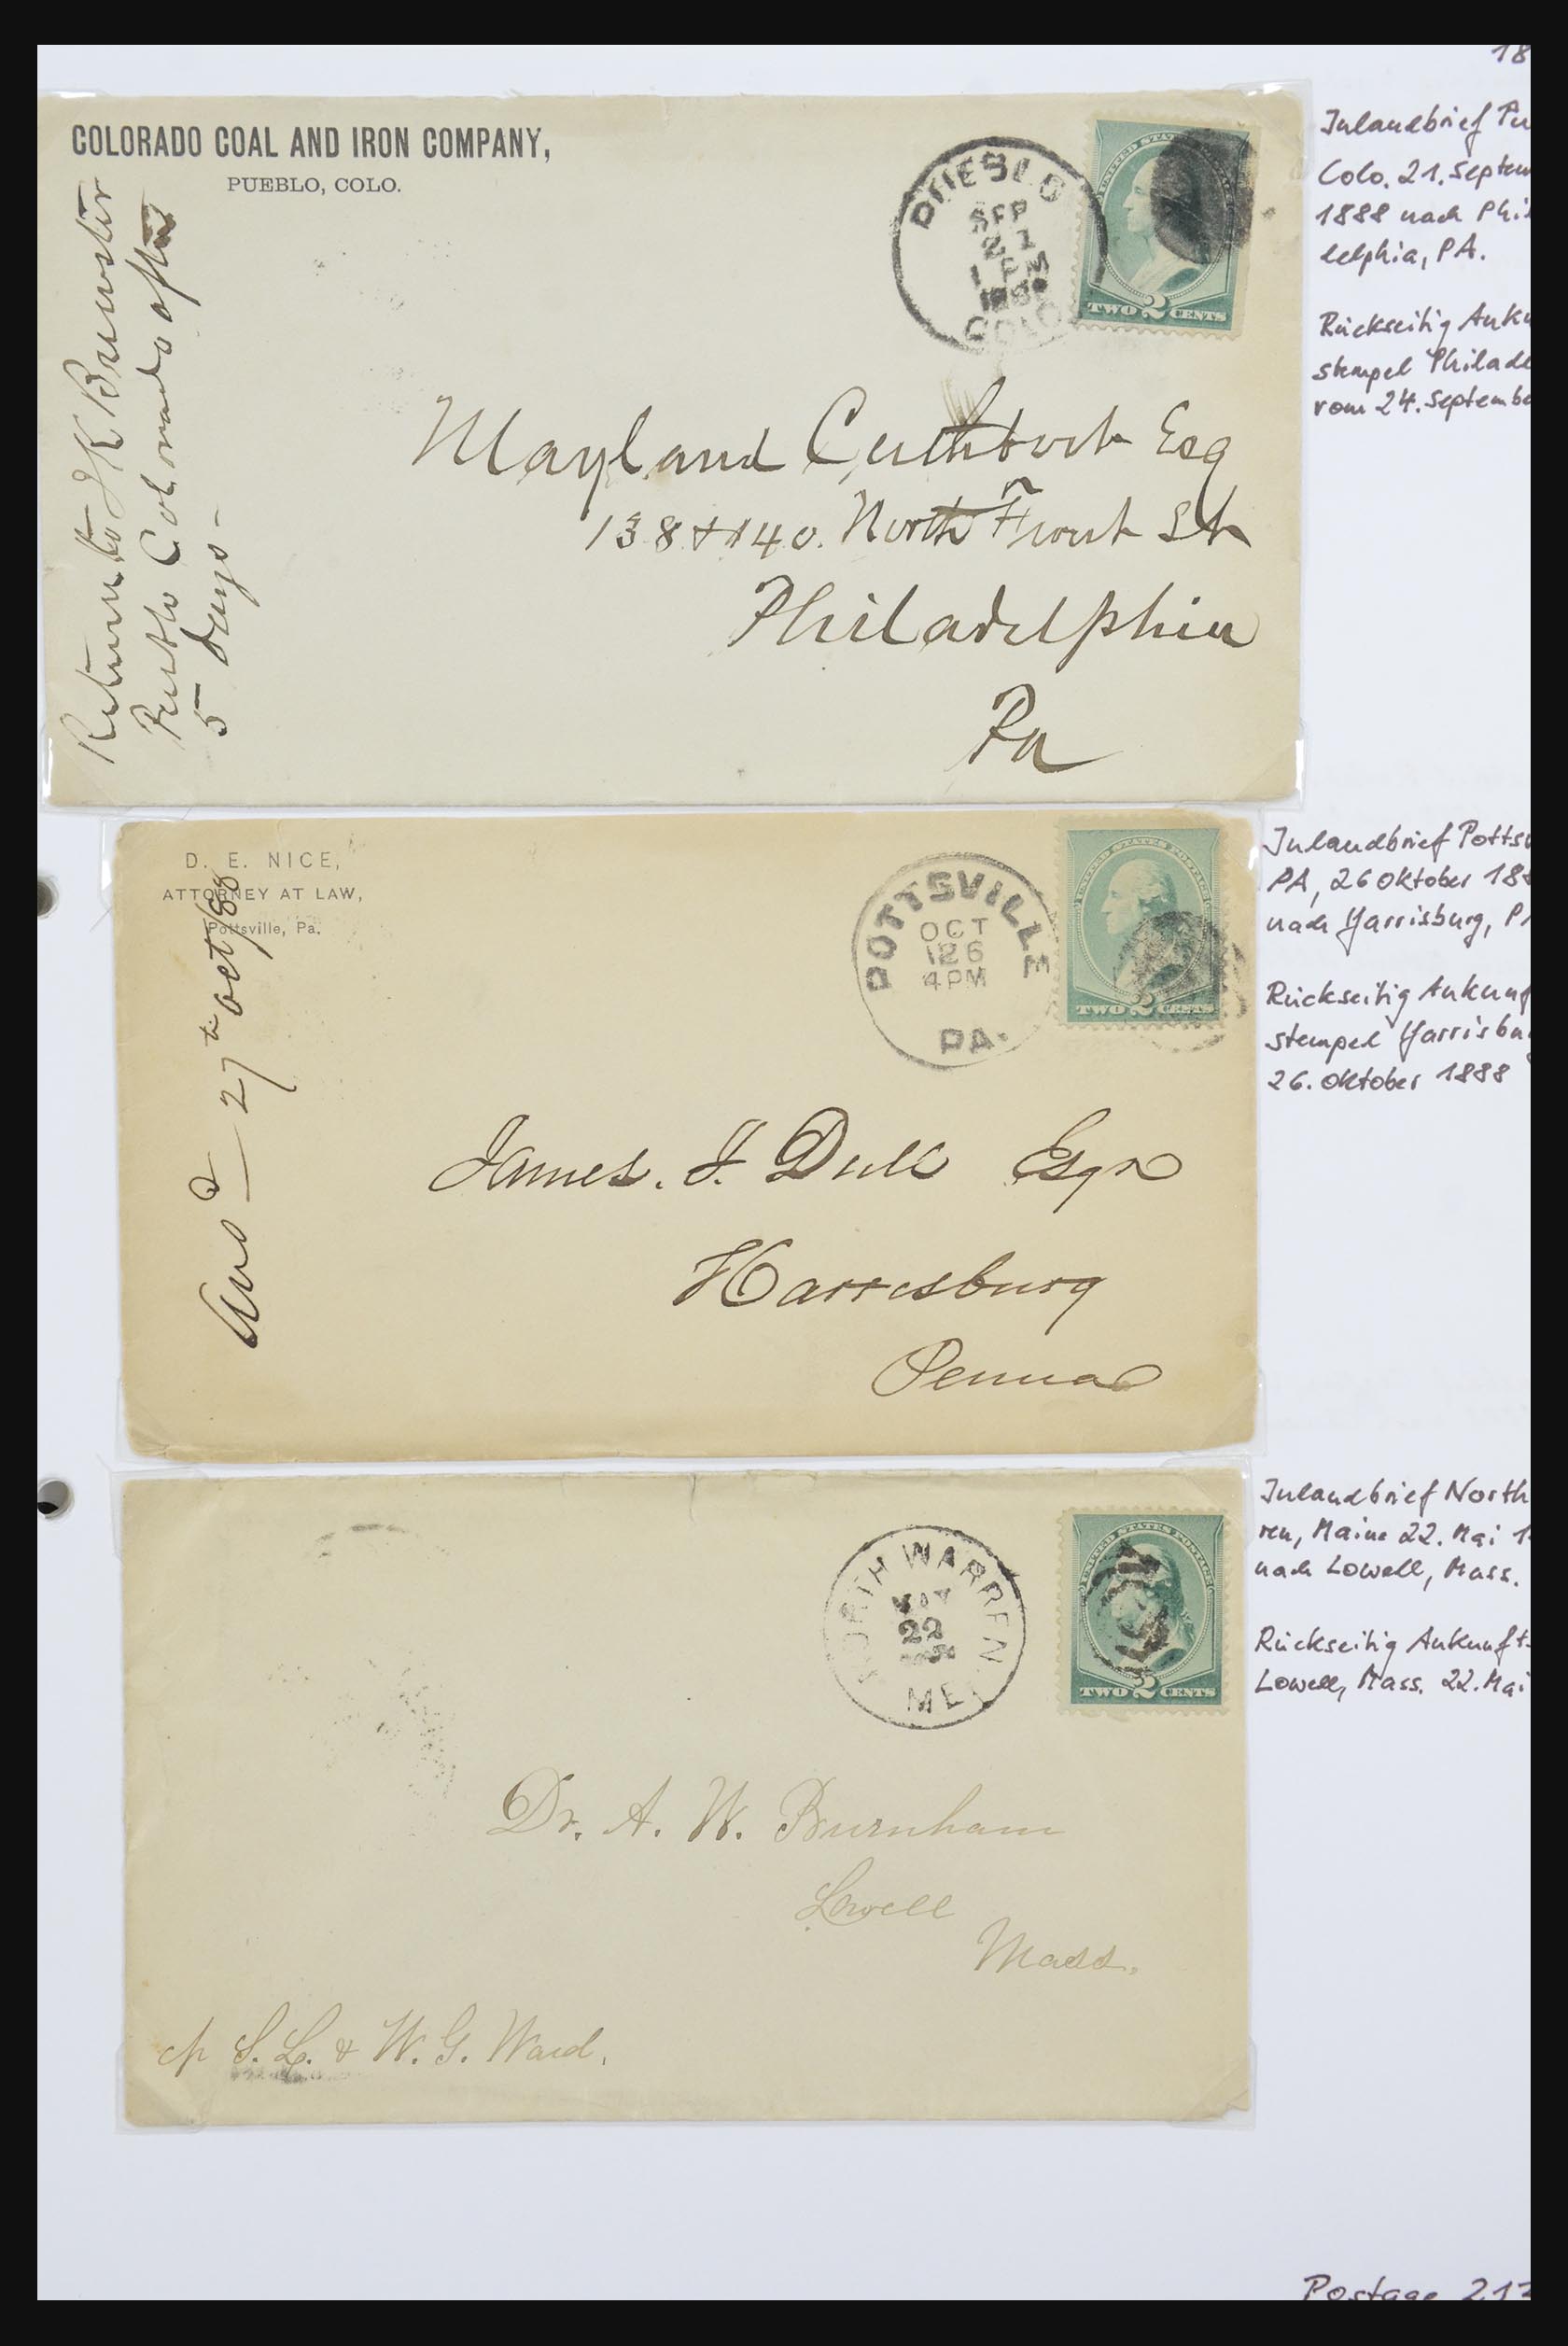 18
COLORADO COAL AND IRON COMPANY,
PUEBLO, COLO.
Return to J K Brewster
Pueblo Colorado after
5 days-
PUEBLO
SEP
21
1 PM
1888
COLO
UNITED STATES POSTAGE
TWO 2 CENTS
Mayland Cuthbert Esq
138 & 140. North Front St
Philadelphia
Pa
Inlandbrief Pu
Colo. 21. Septem
1888 nach Phi
delphia, PA.
Rückseitig Anku
stempel Philade
vom 24. Septembe
D. E. NICE,
ATTORNEY AT LAW,
Pottsville, Pa.
Ansd 27th Oct/88
POTTSVILLE
OCT
26
4 PM
PA.
UNITED STATES POSTAGE
TWO 2 CENTS
James. I. Dull Esqr
Harrisburg
Penna
Inlandbrief Potts
PA, 26 Oktober 188
nach Harrisburg, P
Rückseitig Ankunf
stempel Harrisbu
26. Oktober 1888
NORTH WARREN
MAY
22
ME
UNITED STATES POSTAGE
TWO 2 CENTS
Dr. A. W. Burnham
Lowell
Mass.
S. L. & W. G. Ward.
Inlandbrief North
ren, Maine 22. Mai 1
nach Lowell, Mass.
Rückseitig Ankunft-
Lowell, Mass. 22. Mai
Postage 213